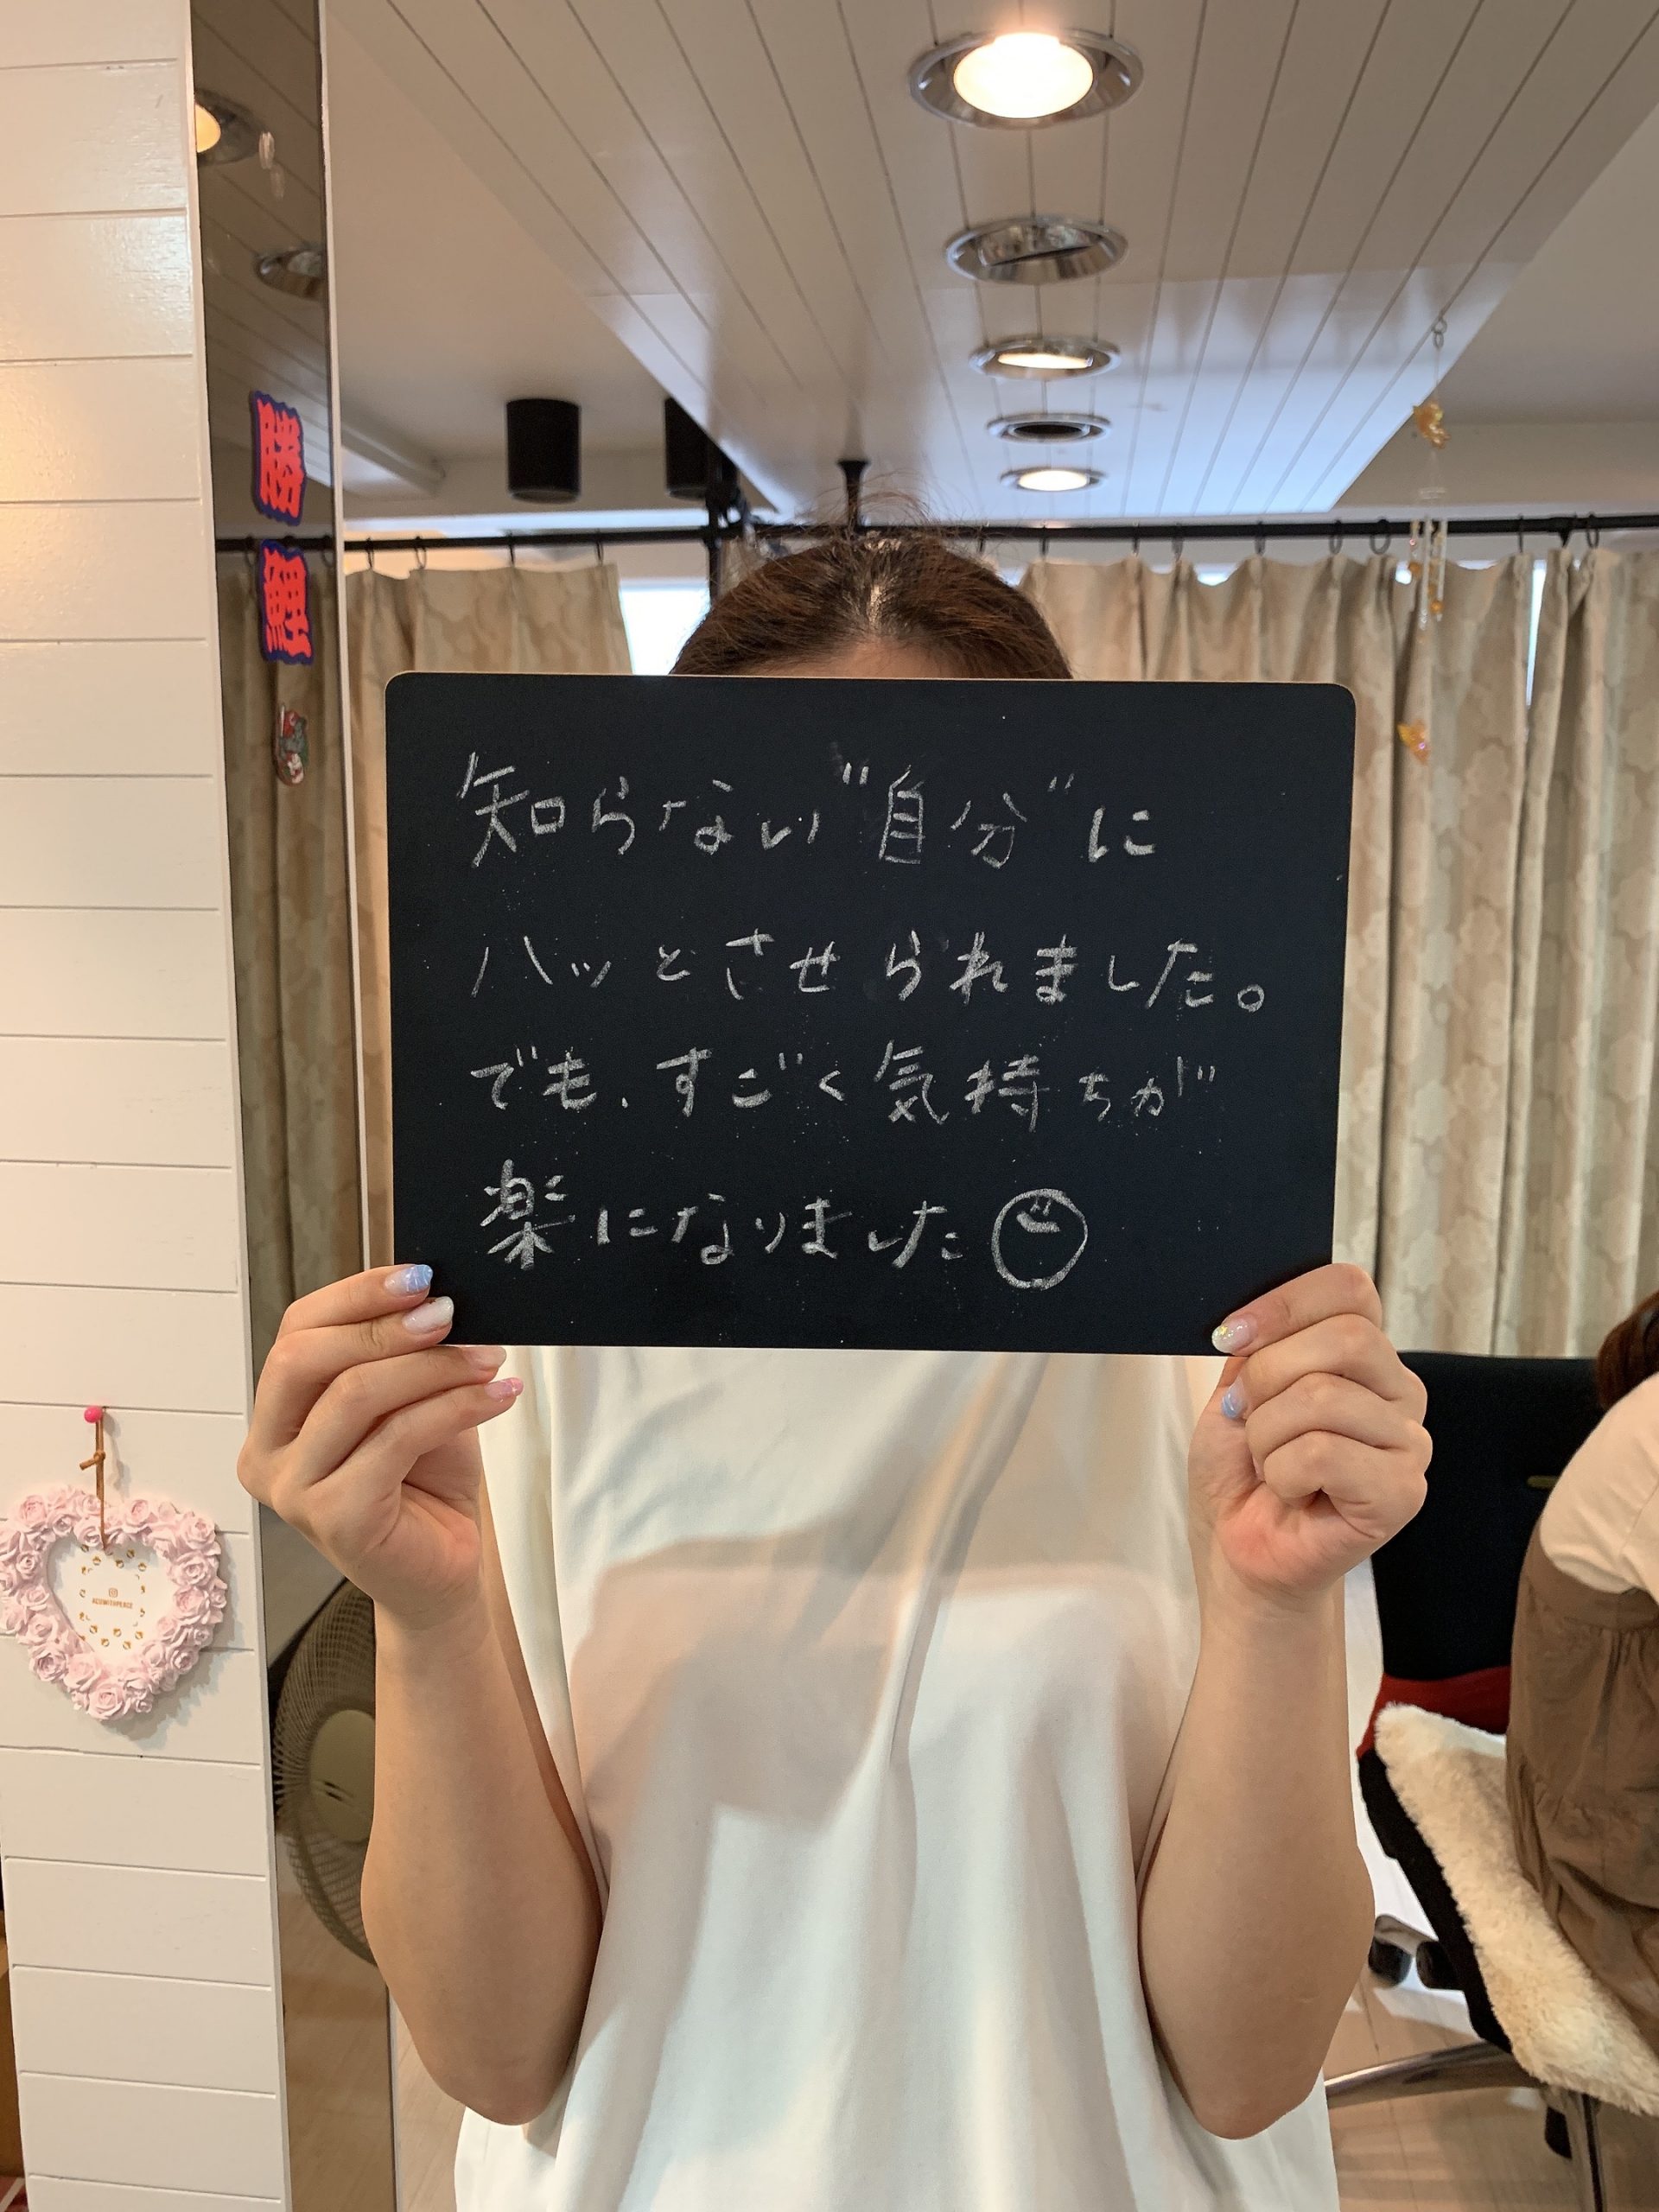 勝
鯉
知らない"自分"に
ハッとさせられました。
でも、すごく気持ちが
楽になりました
ACUWITHPEACE